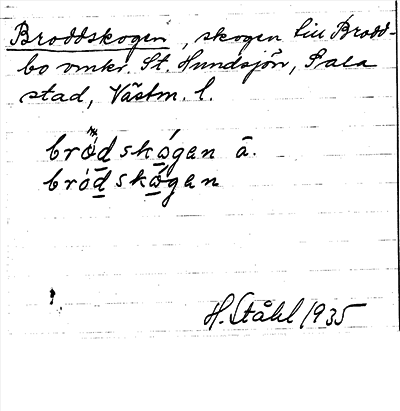 Broddskogen, skogen till Brodd-
bo omkr. St. Hundsjön, Sala
stad, Västm. l.
bro̲d̲skɷ́gan ā.
bród̲skɷ́gan
H. Ståhl 1935